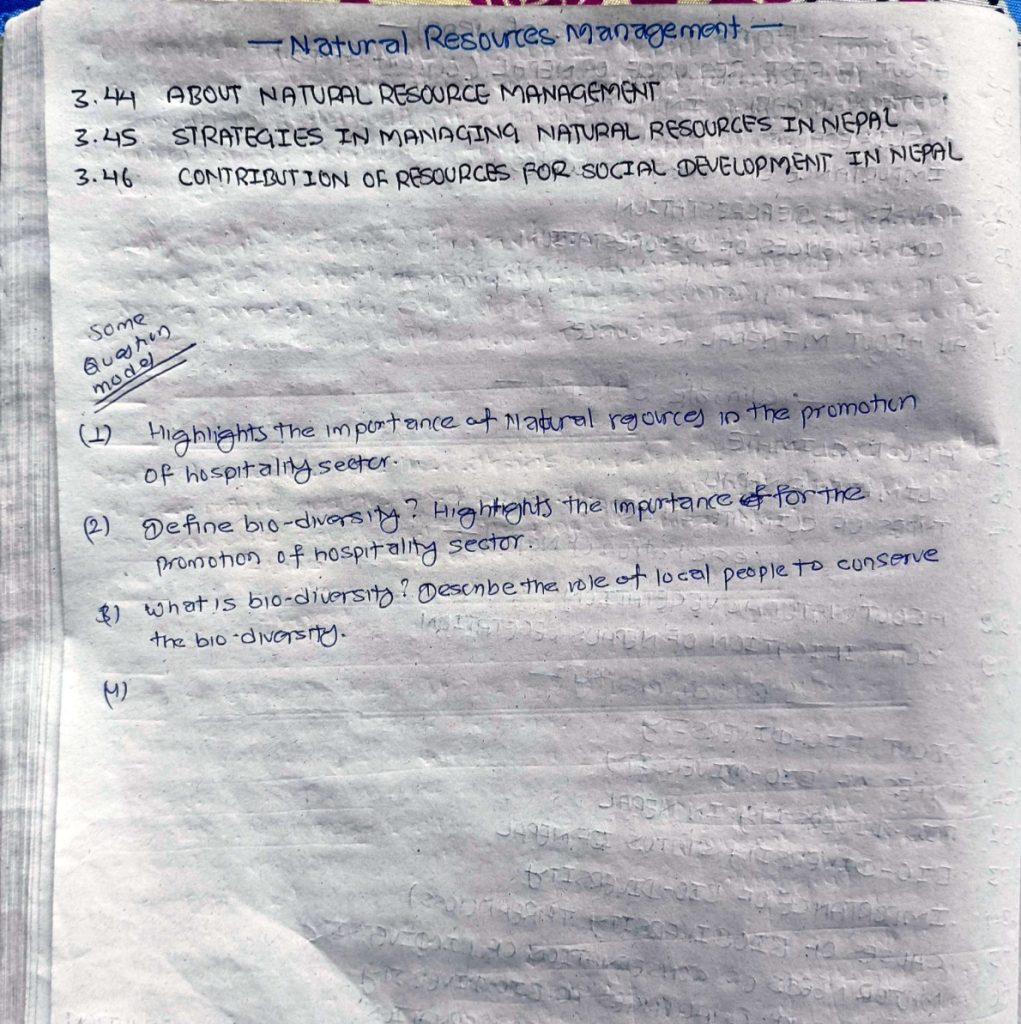 — Natural Resources Management —
3.44 ABOUT NATURAL RESOURCE MANAGEMENT
3.45 STRATEGIES IN MANAGING NATURAL RESOURCES IN NEPAL
3.46 CONTRIBUTION OF RESOURCES FOR SOCIAL DEVELOPMENT IN NEPAL
Some
Question
model
(1) Highlights the importance of Natural resources in the promotion
of hospitality sector.
(2) Define bio-diversity? Highlights the importance for the
promotion of hospitality sector.
3) What is bio-diversity? Describe the role of local people to conserve
the bio-diversity.
(4)